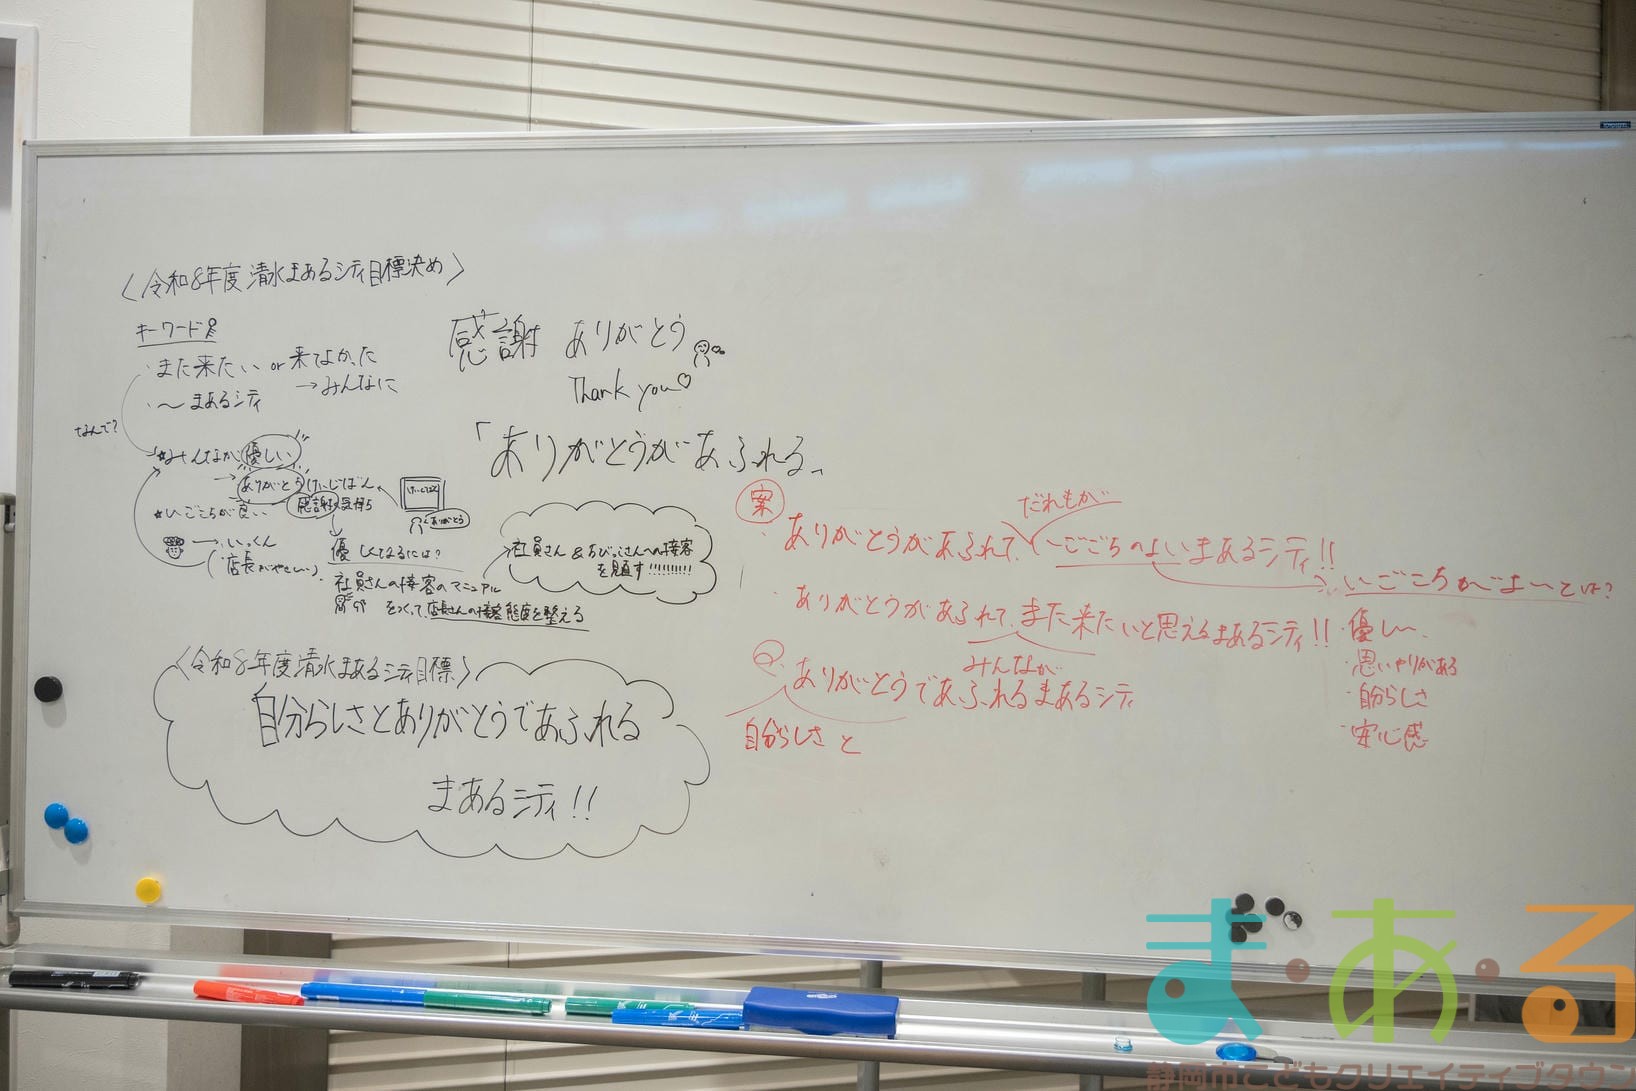 〈令和8年度 清水まあるシティ目標決め〉
キーワード
・また来たい or 来てよかった
→みんなに
・〜まあるシティ
なんで?
★みんなが優しい
→ありがとうけいじばん
感謝の気持ち
★いごこちが良い
→いっくん
(店長がやさしい)
ありがとう
優しくなるには?
社員さんの接客のマニュアル
をつくって、店長さんの接客態度を整える
社員さん&ちびっこさんへの接客
を見直す!!!!!!!!!!
感謝 ありがとう
Thank you♡
「ありがとうがあふれる」
〈令和8年度清水まあるシティ目標〉
自分らしさとありがとうであふれる
まあるシティ!!
案
だれもが
・ありがとうがあふれて、いごごちのよいまあるシティ!!
いごこちがよいとは?
・ありがとうがあふれて、また来たいと思えるまあるシティ!!
みんなが
ありがとうであふれるまあるシティ
自分らしさと
・優しい
・思いやりがある
・自分らしさ
・安心感
ま・あ・る
静岡市こどもクリエイティブタウン